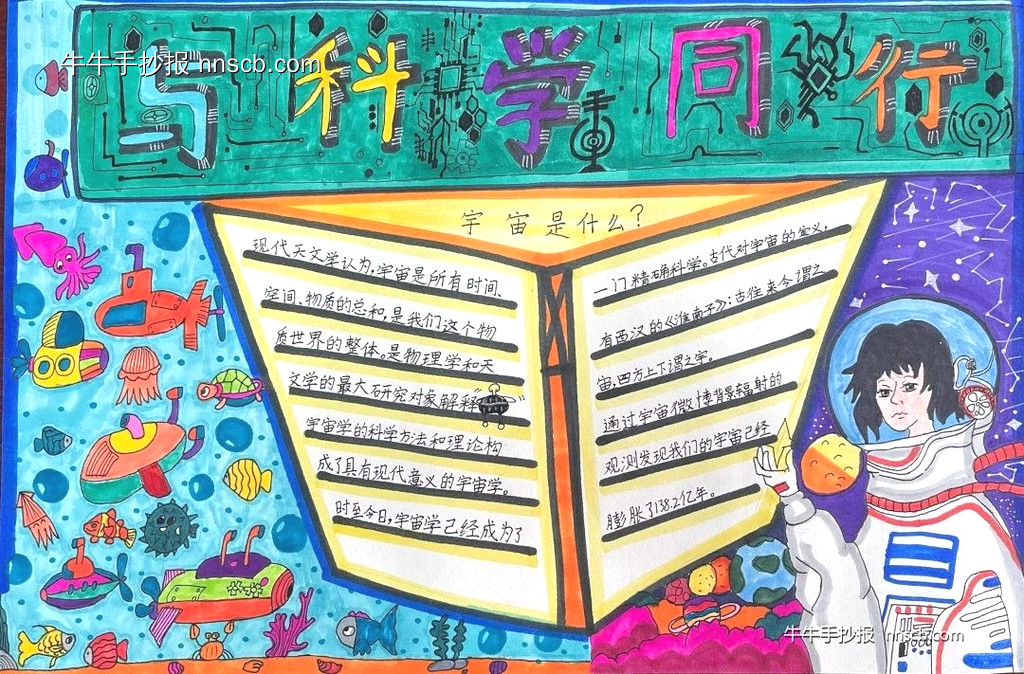 与科学同行
牛牛手抄报 nnscb.com
宇宙是什么?
现代天文学认为,宇宙是所有时间、
空间、物质的总和,是我们这个物
质世界的整体。是物理学和天
文学的最大研究对象解释
宇宙学的科学方法和理论构
成了具有现代意义的宇宙学。
时至今日,宇宙学已经成为了
一门精确科学。古代对宇宙的定义,
有西汉的《淮南子》:古往来今谓之
宙,四方上下谓之宇。
通过宇宙微博背景辐射的
观测发现我们的宇宙己经
膨胀了138.2亿年。
牛牛手抄报 nnscb.com